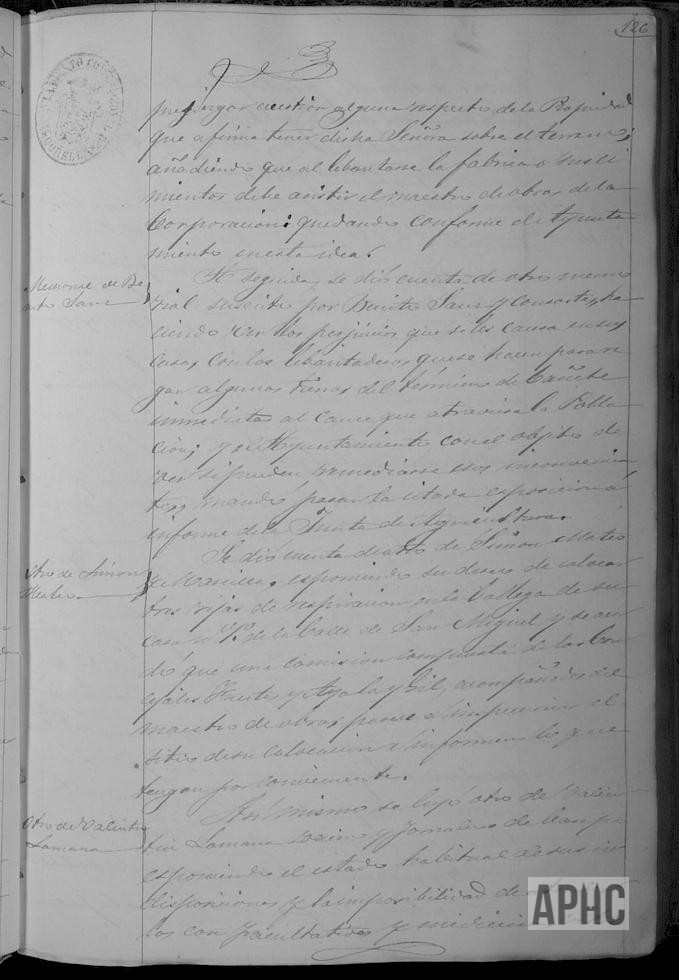 126
prejuzgar cuestion alguna respecto de la Propiedad
que afirma tener dicha Señora sobre el terreno,
añadiendo que al lebantarse la fabrica o sus ci
mientos debe asistir el maestro de obras de la
Corporacion: quedando conforme el Ayunta
miento en esta idea.
Memorial de Be
nito Sanz
A seguida, se dió cuenta de otro memo
rial suscrito por Benito Sanz y Consortes, ha
ciendo ver los perjuicios que se les causa en sus
casas con los lebantaderos que se hacen para re
gar algunas tierras del término de Cañete
inmediatas al cauce que atraviesa la Pobla
cion; y el Ayuntamiento con el objeto de
ver si pueden remediarse esos inconvenien
tes, mandó pasar la citada exposicion á
informe de la Junta de Agricultura.
Otro de Simon
Mateo
Se dió cuenta de otro de Simon Mateo
esponiendo su deseo de colocar
tres rejas de respiracion en la Vallega de su
casa nº de la Calle de San Miguel y se acor
dó que una comision compuesta de los Con
cejales Fuertes y Ayala y Gil, acompañados del
maestro de obras pasase á inspeccionar el
sitio de su colocacion é informen lo que
tengan por conveniente.
Otro de Valentin
Lamana
Asi mismo se leyó otro de Valen
tin Lamana vecino y Jornalero de Campo
esponiendo el estado habitual de sus in
disposiciones y la imposibilidad de
los con facultativos y medicinas
APHC